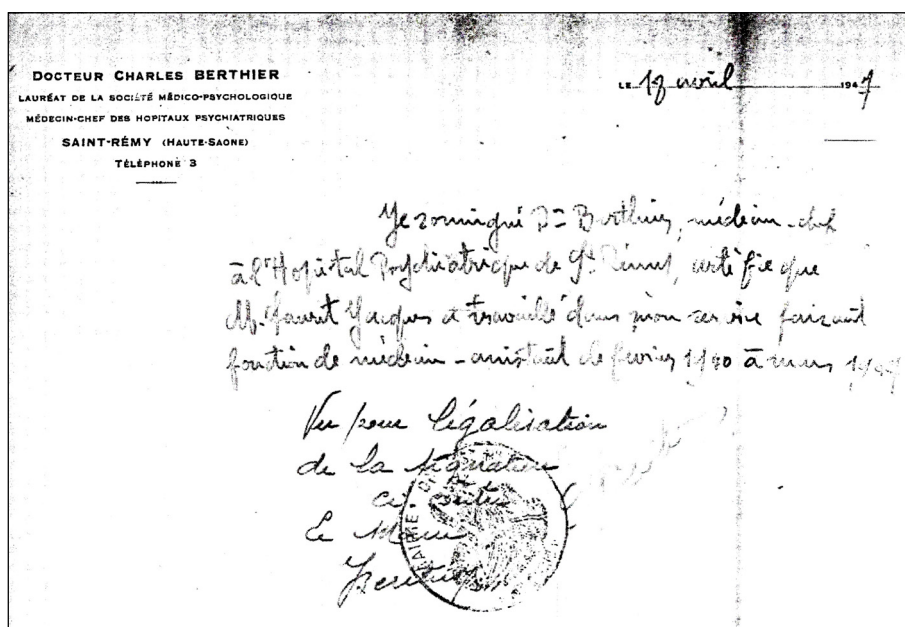 DOCTEUR CHARLES BERTHIER
LAURÉAT DE LA SOCIÉTÉ MÉDICO-PSYCHOLOGIQUE
MÉDECIN-CHEF DES HOPITAUX PSYCHIATRIQUES
SAINT-RÉMY (HAUTE-SAONE)
TÉLÉPHONE 3
LE 18 avril 1947
Je soussigné Dr Berthier, médecin-chef
à l'Hopital Psychiatrique de St Rémy, certifie que
M. Jacques a travaillé dans mon service faisant
fonction de médecin-assistant de février 1940 à mars
Vu pour légalisation
de la signature
ci contre
Le Maire
MAIRIE